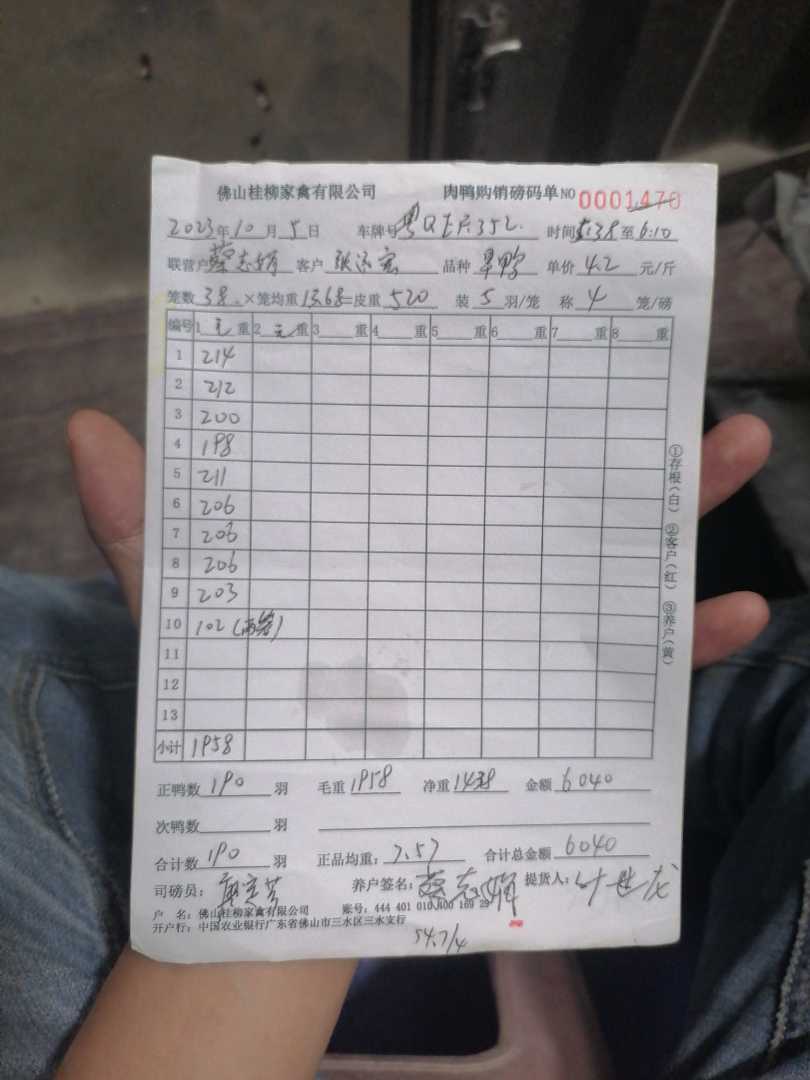 佛山桂柳家禽有限公司 肉鸭购销磅码单 NO 0001470
2023年10月5日 车牌号粤QEF352. 时间5:38至6:10
联营户蔡志娟 客户 品种旱鸭 单价4.2元/斤
笼数38×笼均重13.68=皮重520 装5羽/笼 称4笼/磅
编号 1毛重 2毛重 3重 4重 5重 6重 7重 8重
1 214
2 212
3 200
4 198
5 211
6 206
7 206
8 206
9 203
10 102(两笼)
11
12
13
小计 1958
正鸭数190羽 毛重1958 净重1438 金额6040
次鸭数 羽
合计数190羽 正品均重:7.57 合计总金额6040
司磅员: 养户签名:蔡志娟 提货人:叶世龙
户 名:佛山桂柳家禽有限公司 账号:444 401 010 400 169 29
开户行:中国农业银行广东省佛山市三水区三水支行
54.7/4
①存根(白) ②客户(红) ③养户(黄)